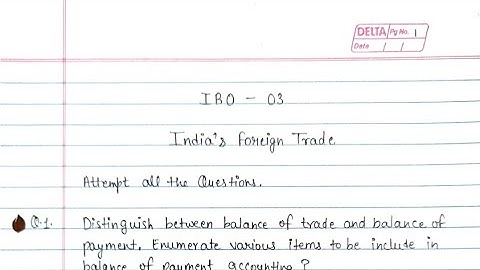 DELTA Pg No. 1
Date / /
IBO - 03
India's Foreign Trade
Attempt all the Questions.
Q.1. Distinguish between balance of trade and balance of
payment. Enumerate various items to be include in
balance of payment accounting ?